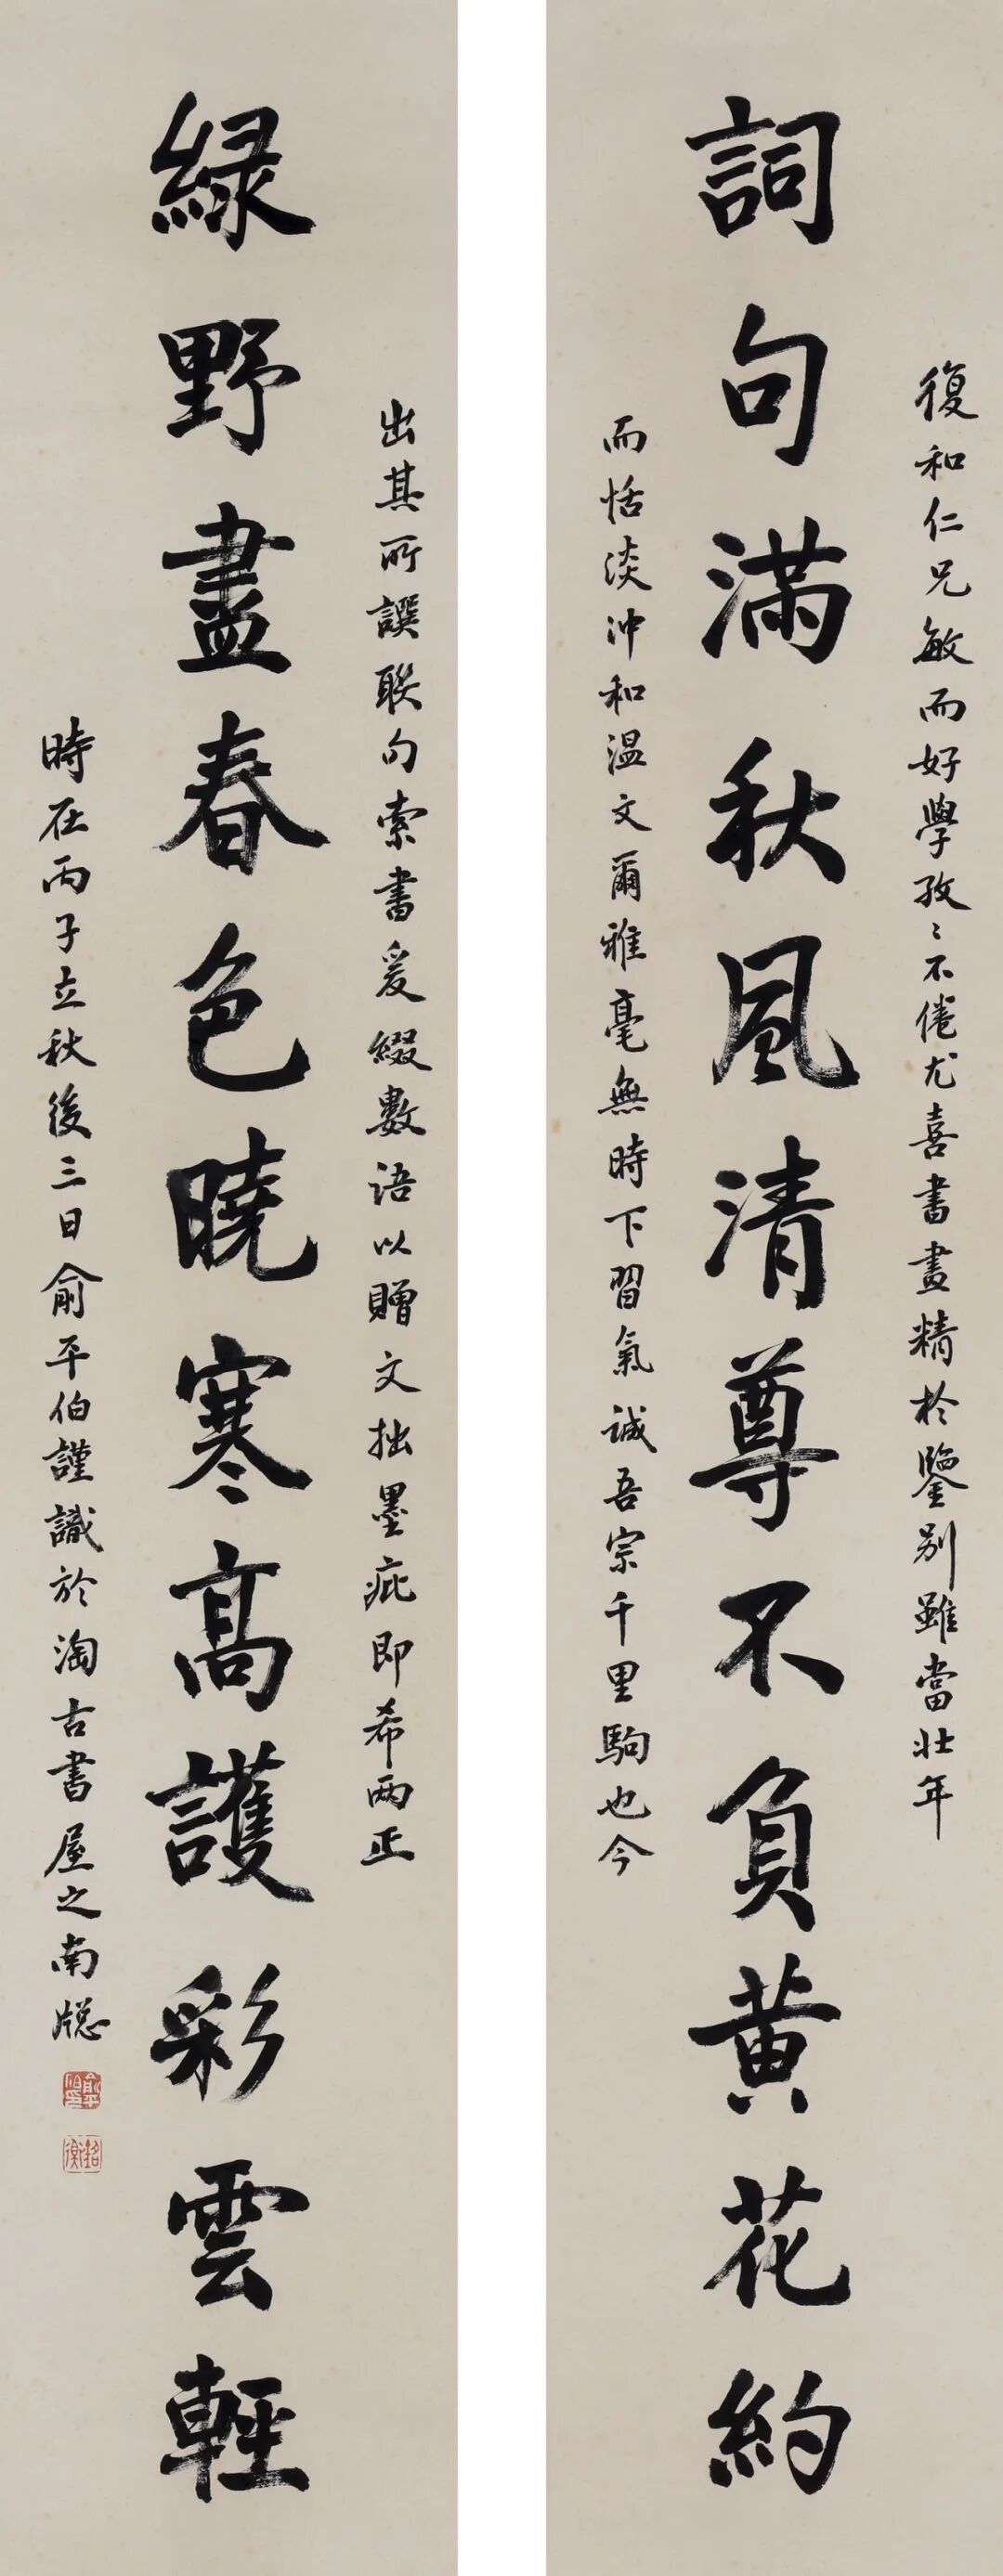 復和仁兄敏而好學孜〻不倦尤喜書畫精於鑒别雖當壯年
詞句滿秋風清尊不負黄花約
而恬淡沖和温文爾雅毫無時下習氣誠吾宗千里駒也今
出其所譔聯句索書爰綴數語以贈文拙墨疵即希兩正
緑野盡春色曉寒高護彩雲輕
時在丙子立秋後三日俞平伯謹識於淘古書屋之南牕
俞平伯印
銘衡